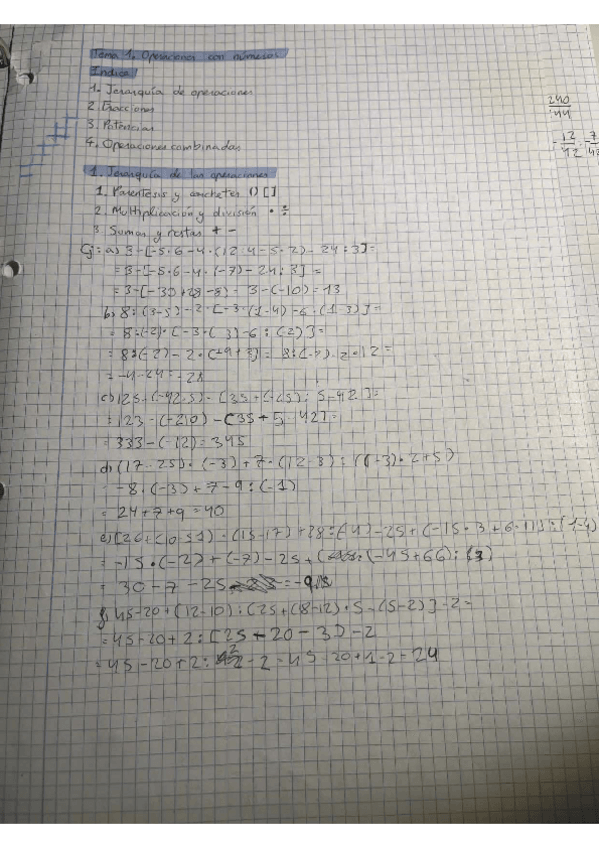 Tema 1. Operaciones con números
Índice
1. Jerarquía de operaciones
2. Fracciones
3. Potencias
4. Operaciones combinadas
240
44
-12/42 7/42
1. Jerarquía de las operaciones
1. Paréntesis y corchetes () []
2. Multiplicación y división • ÷
3 Sumas y restas + -
Ej: a) 3-[-5·6-4·(12:4-5·2)-24:3]=
=3-[-5·6-4·(-7)-24:3]=
=3-[-30+28-8)- 3-(-10)=13
b) 8:(3-5)-2·[-3·(1-4)-6:(1-3)]=
=8:(-2)·[-3·(-3)-6:(-2)]=
=8:(-2)-2·(+9+3]= 8:(-2) 2·12=
=-4-24=-28
c) 125-(-42·5)-[35+(-25):5-42]=
=123-(-210)-[35+5 42]=
=333-(-12)=345
d) (17-25)·(-3)+7-(12-3):((-3)·2+5)
-8·(-3)+7-9:(-1)
=24+7+9=40
=-15·(-2)+(-7)-25+ (-45+66):(3)
= 30-7-25
f) 45-20+(12-10):[25+(8-12)·5-(5-2)]-2=
=45-20+2:[25-20-3)-2
=45-20+2:2-2=45-20+1-2=24